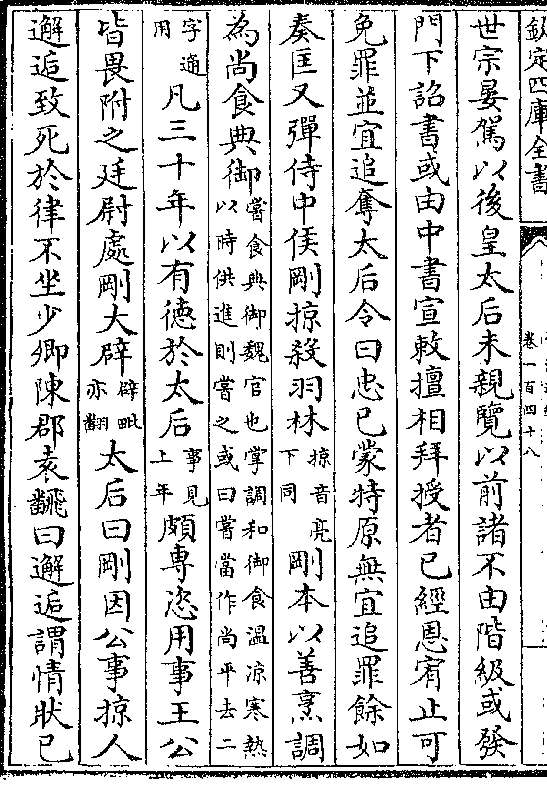 欽定四庫全書
卷一百四十八
世宗晏駕以後皇太后未親覽以前諸不由階級或發
門下詔書或由中書宣敕擅相拜授者已經恩宥止可
免罪並宜追奪太后令曰忠已蒙特原無宜追罪餘如
奏匡又彈侍中侯剛掠殺羽林掠音亮下同剛本以善烹調
為尚食典御嘗食典御魏官也掌調和御食溫涼寒熱以時供進則嘗之或曰嘗當作尚平去二
字通用凡三十年以有德於太后事見上年頗專恣用事王公
皆畏附之廷尉處剛大辟辟毗亦翻太后曰剛因公事掠人
邂逅致死於律不坐少卿陳郡袁翻曰邂逅謂情狀已